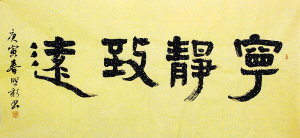 寧靜致遠
庚寅春